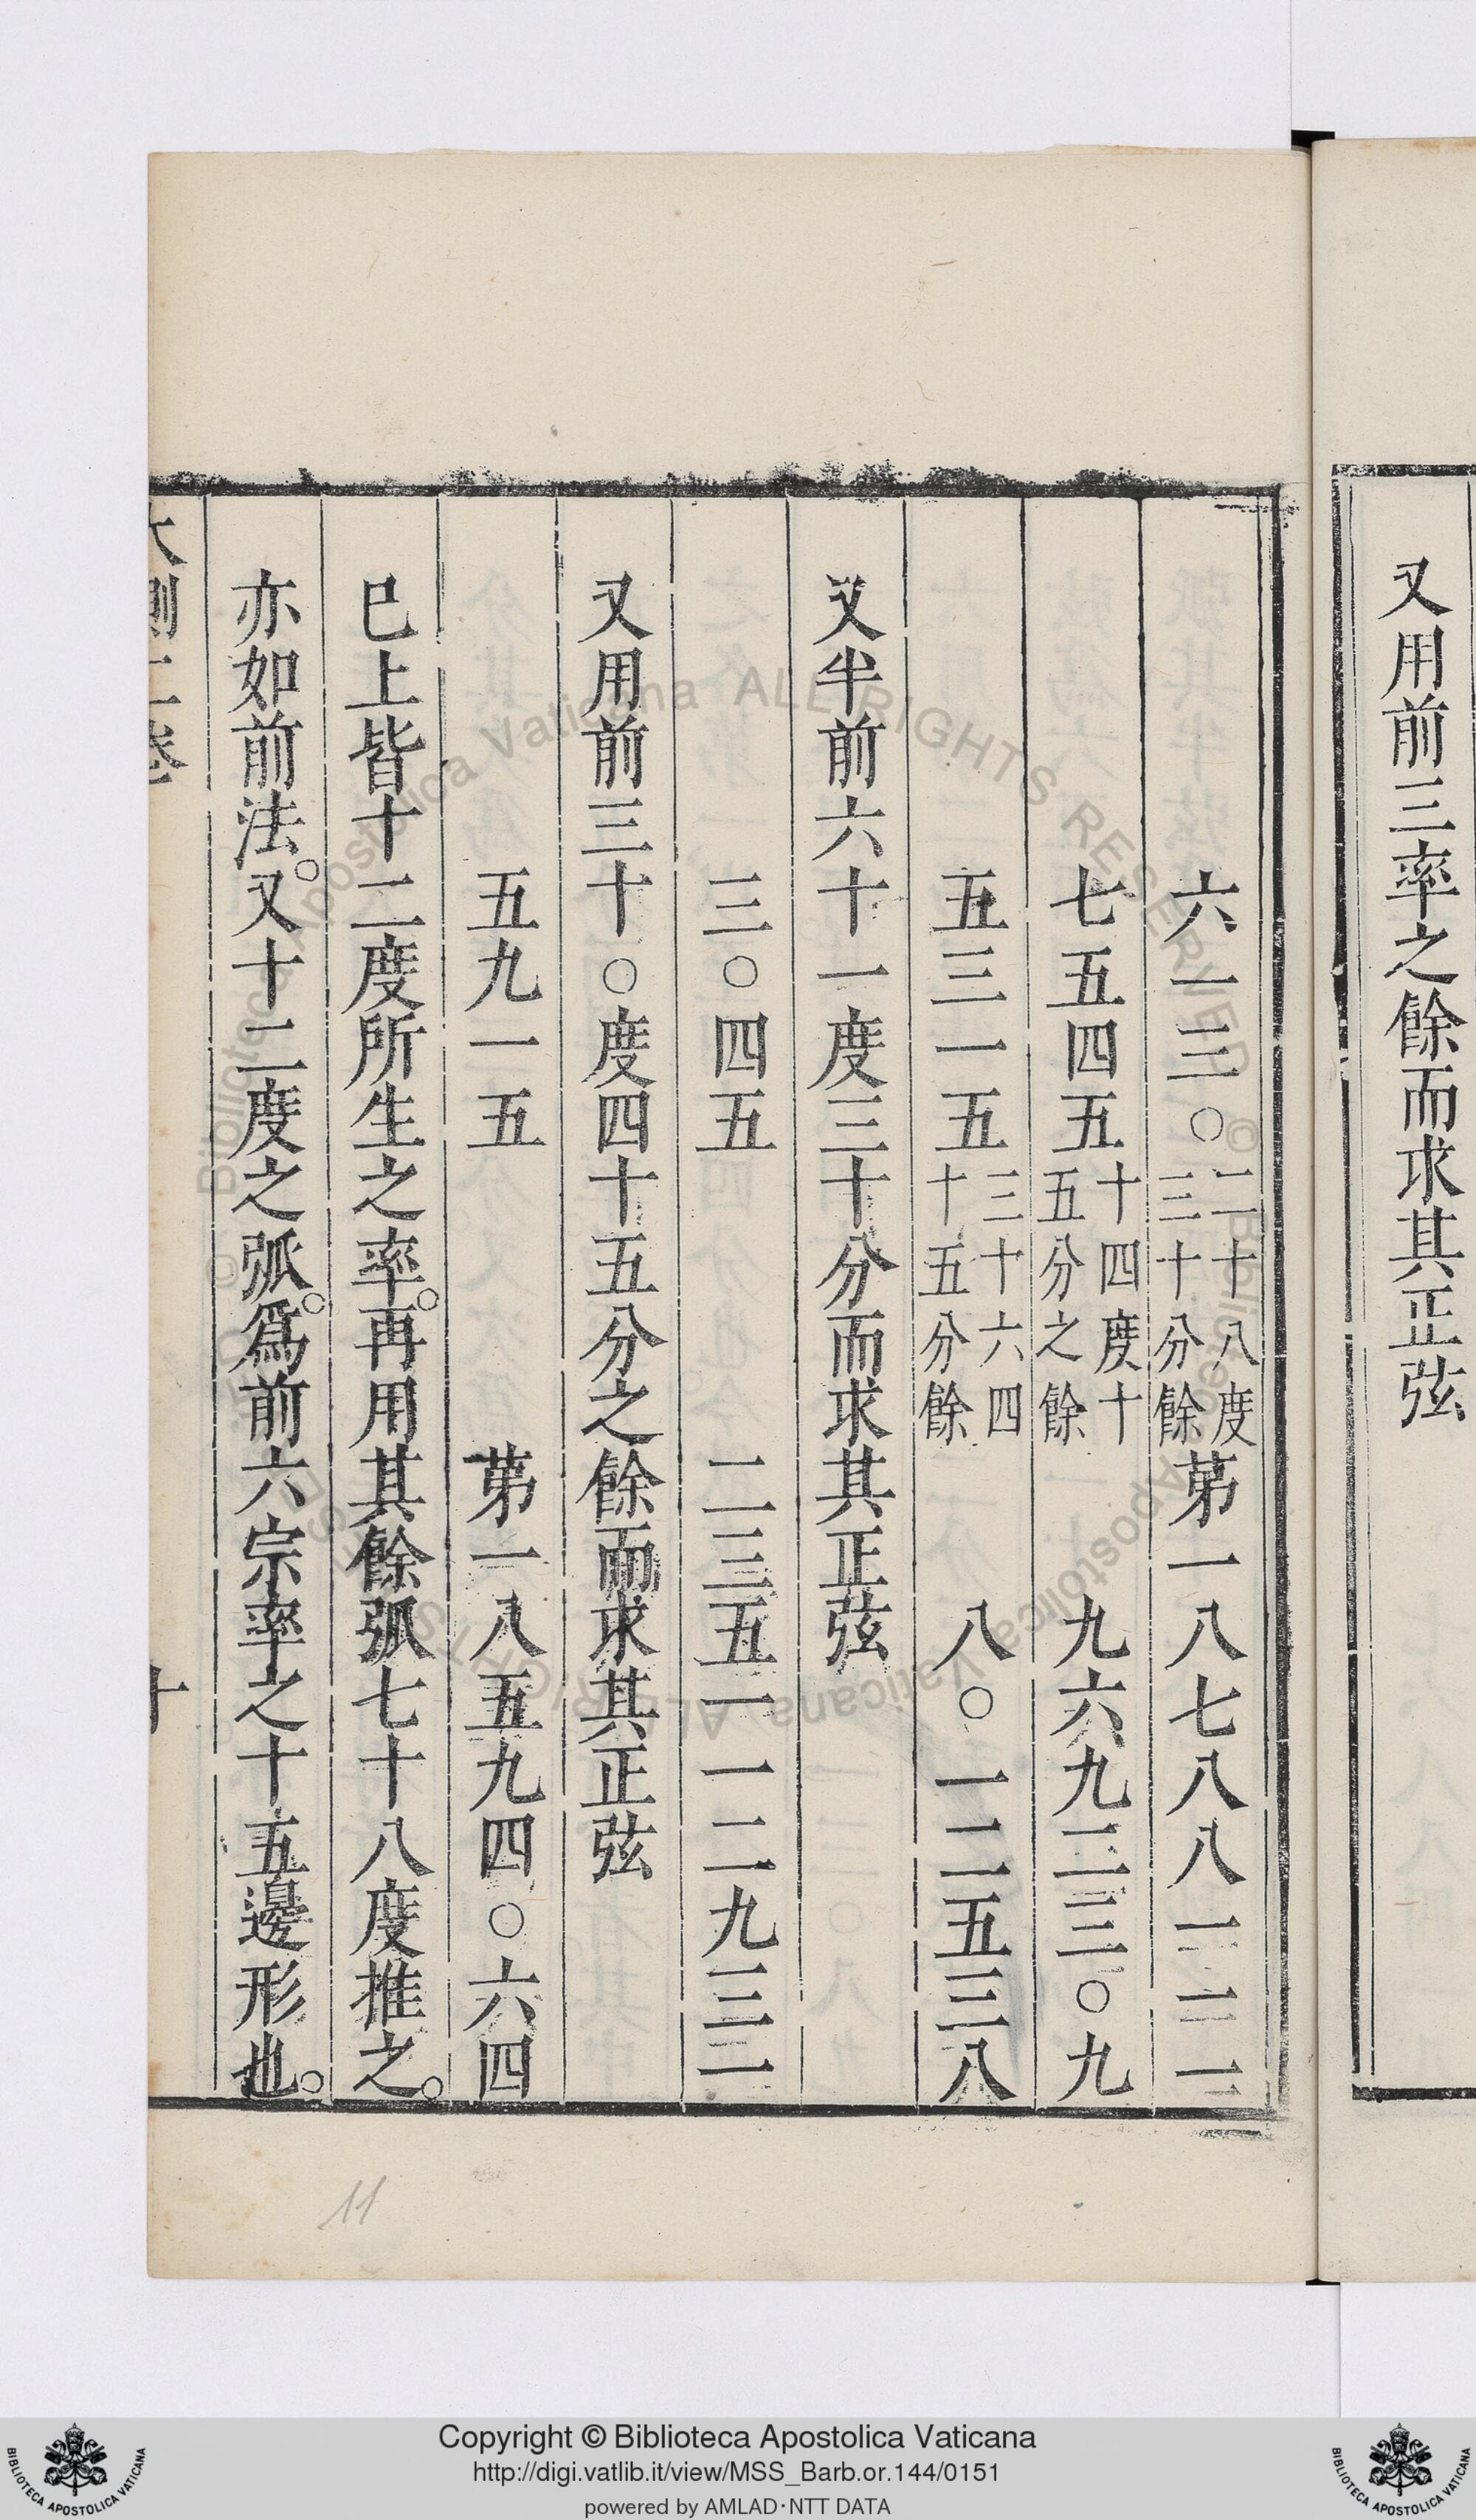 又用前三率之餘而求其正弦
六一三〇二十八度三十分餘第一八七八八一二二
七五四五十四度十五分之餘九六九二三〇九
五三一五三十六四十五分餘八〇一二五三八
又半前六十一度三十分而求其正弦
三〇四五 二三五一一二九三二
又用前三十〇度四十五分之餘而求其正弦
五九一五 第一八五九四〇六四
巳上皆十二度所生之率。再用其餘弧七十八度推之。
亦如前法。又十二度之弧。爲前六宗率之十五邊形也。
大測二卷 十
11
Copyright © Biblioteca Apostolica Vaticana
http://digi.vatlib.it/view/MSS_Barb.or.144/0151
powered by AMLAD·NTT DATA